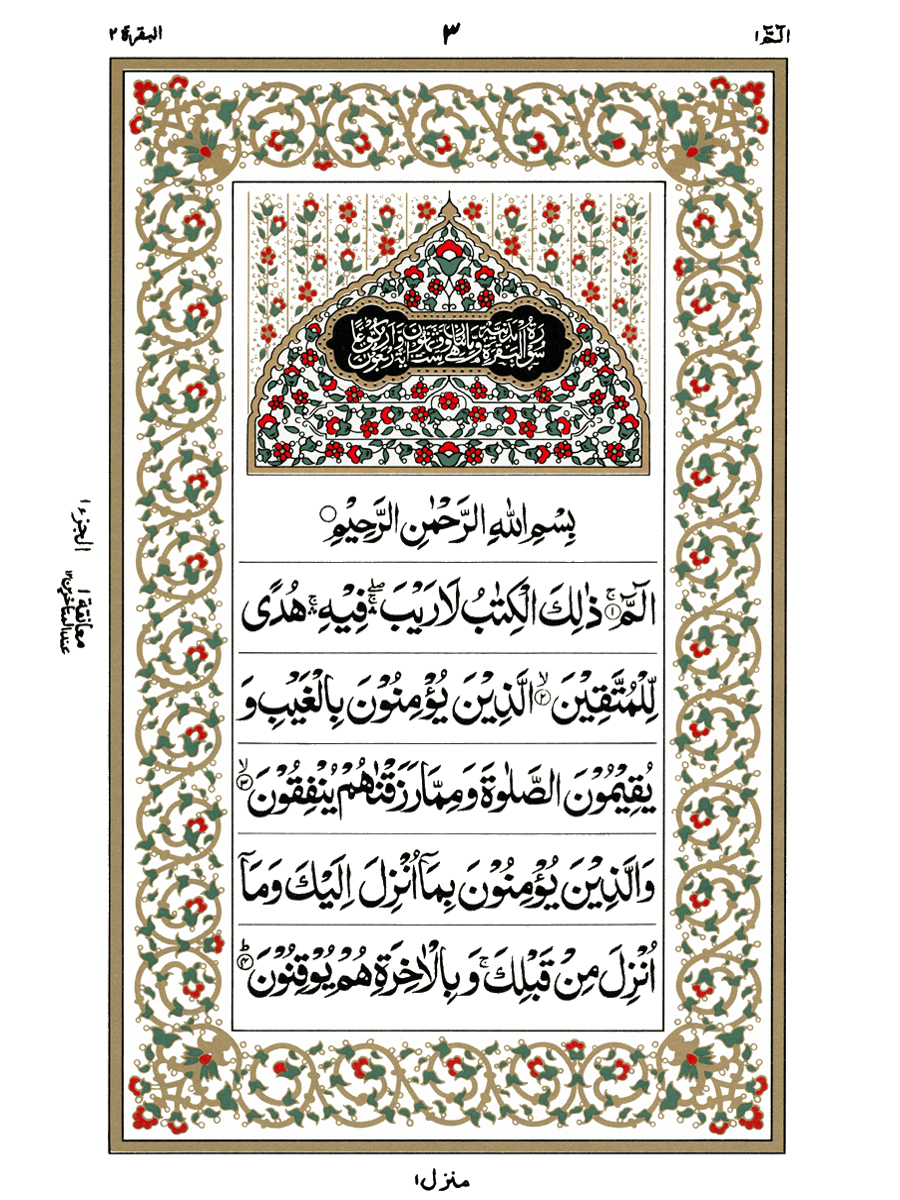 الٓمّٓ ١
٣
البقرة ٢
سُوْرَةُ الْبَقَرَةِ مَدَنِيَّةٌ
بِسْمِ اللهِ الرَّحْمٰنِ الرَّحِيْمِ ○
الٓمّٓ ۚ﴿١﴾ ذٰلِكَ الْكِتٰبُ لَا رَيْبَ ۛۖ فِيْهِ ۛۚ هُدًى
لِّلْمُتَّقِيْنَ ۙ﴿٢﴾ الَّذِيْنَ يُؤْمِنُوْنَ بِالْغَيْبِ وَ
يُقِيْمُوْنَ الصَّلٰوةَ وَمِمَّا رَزَقْنٰهُمْ يُنْفِقُوْنَ ۙ﴿٣﴾
وَالَّذِيْنَ يُؤْمِنُوْنَ بِمَآ اُنْزِلَ اِلَيْكَ وَمَآ
اُنْزِلَ مِنْ قَبْلِكَ ۚ وَبِالْاٰخِرَةِ هُمْ يُوْقِنُوْنَ ؕ﴿٤﴾
الجزء ١
معانقة ١
عند المتأخرين ١٢
منزل ١